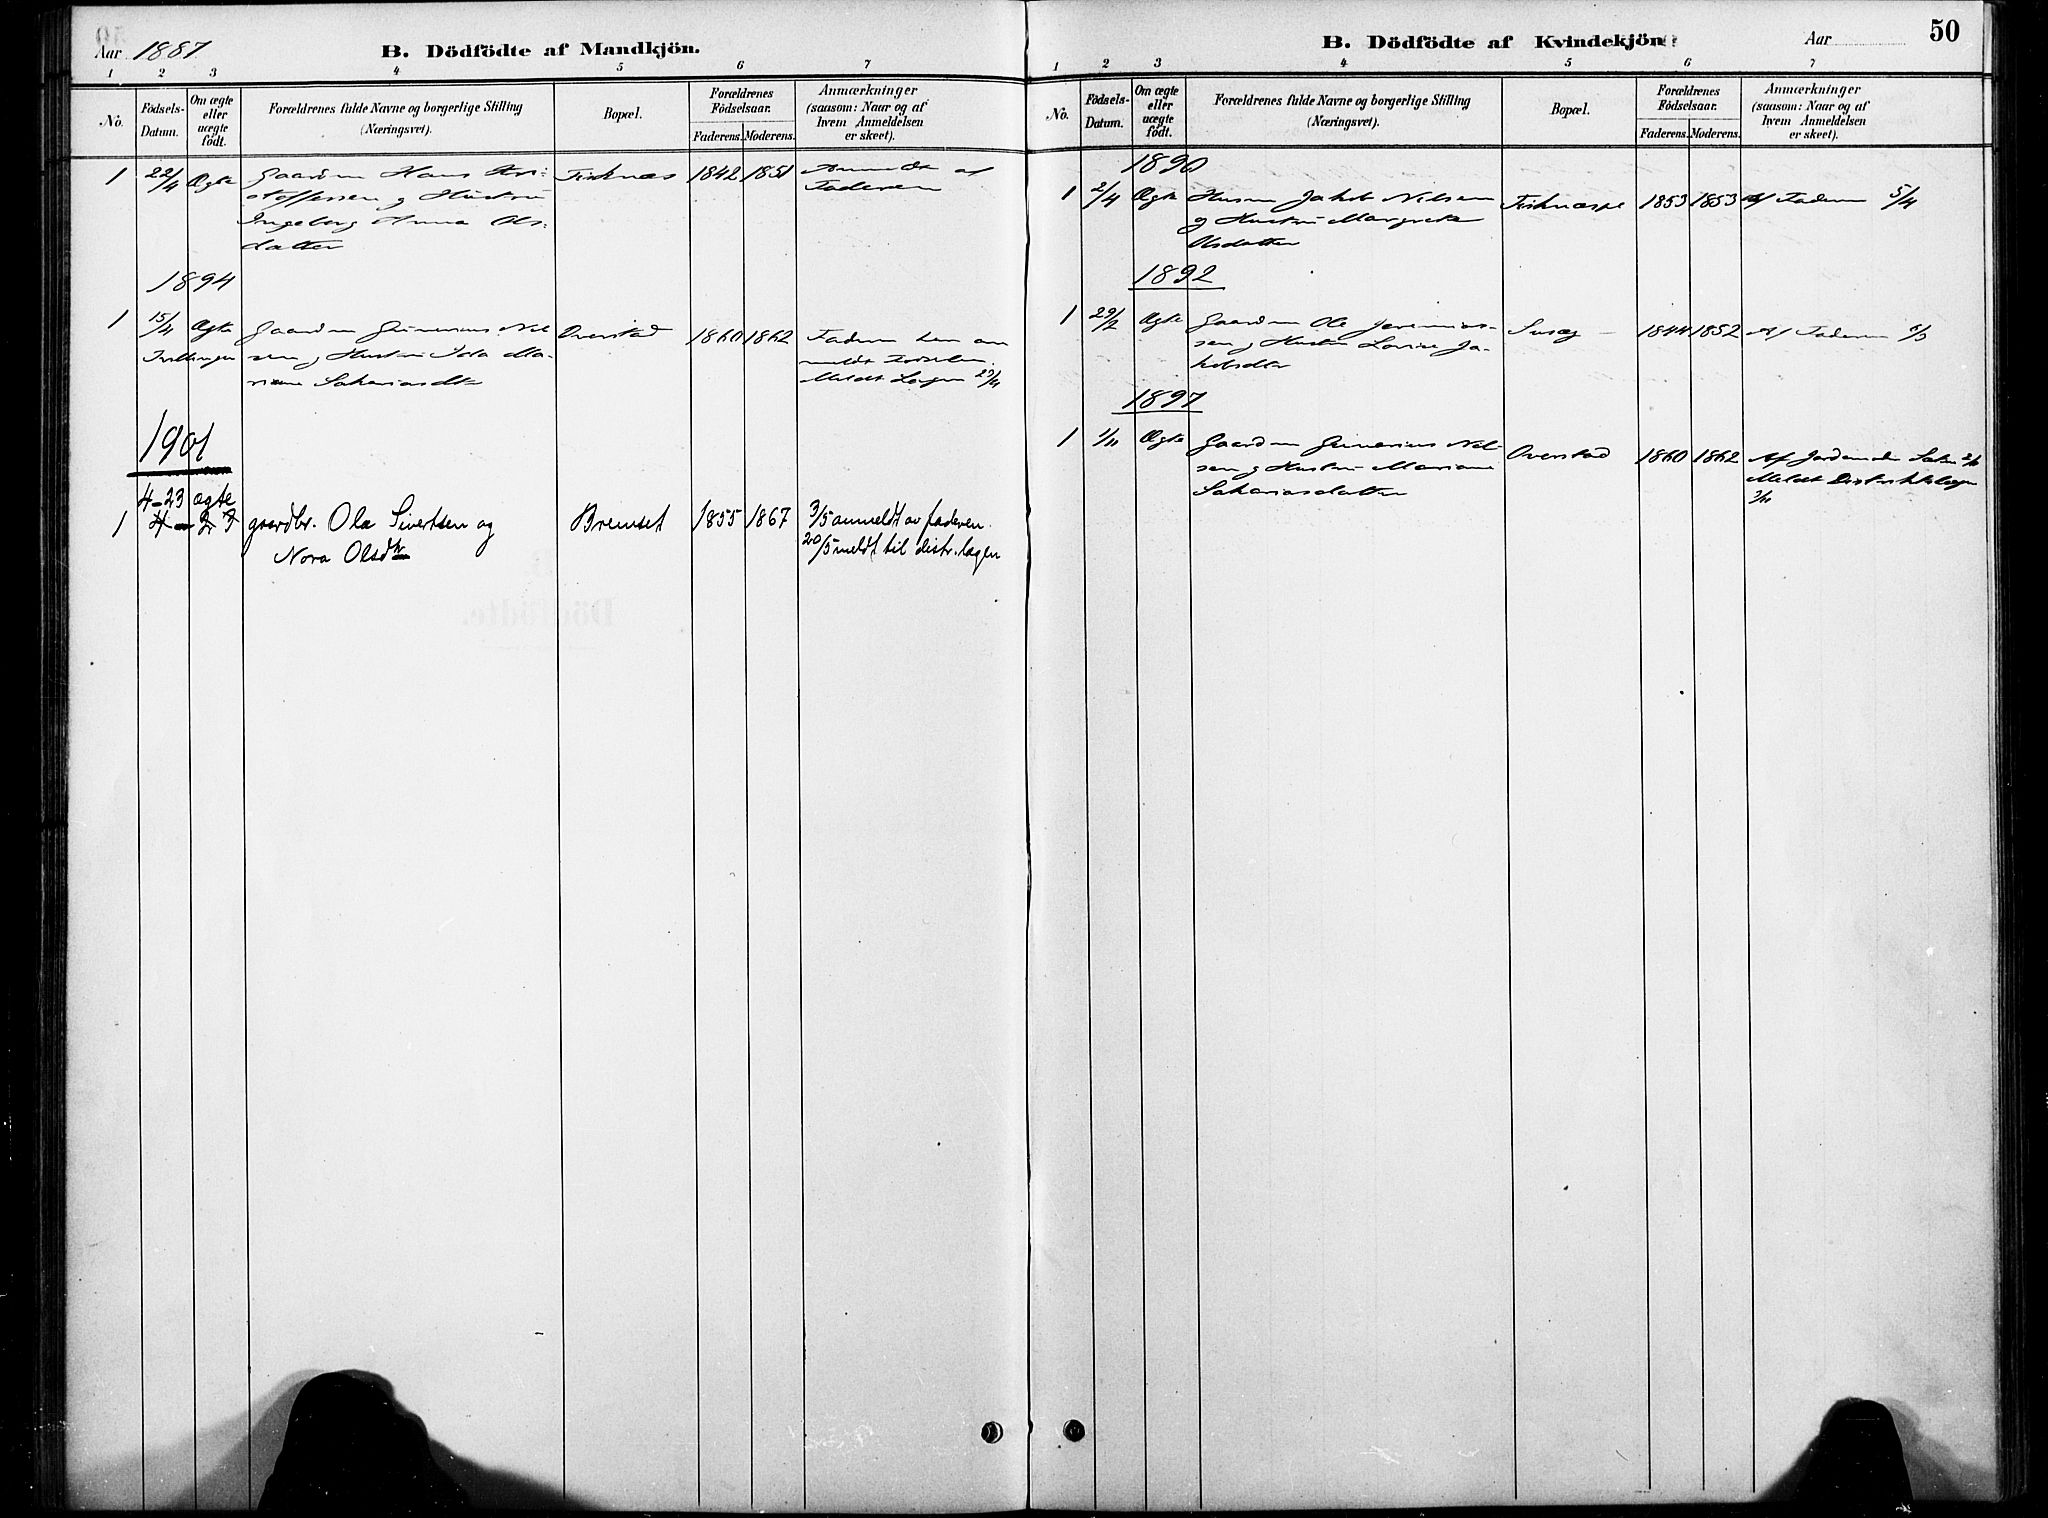 Aar 1887 B. Dödfödte af Mandkjön.
1 2 3 4 5 6 7
No. Födsels-Datum. Om ægte eller uægte födt. Forældrenes fulde Navne og borgerlige Stilling (Næringsvei). Bopæl. Forældrenes Födselsaar. Faderens. Moderens. Anmærkninger (saasom: Naar og af hvem Anmeldelsen er skeet).
1 22/4 Ægte Gaardm Hans Kri- Fisknæs 1842 1851 Anmeldt af
stoffersen og Hustru Faderen
Ingeborg Anna Ols-
datter
1894
1 15/4 Ægte Gaardm Gunerius Nel- Overstad 1860 1862 Faderen har an
Tvillinger sen og Hustru Ida Ma- meldt Fødselen.
riane Sakariasdtr Meldt Lægen 23/4
1901
4-23 ægte
1 gaardbr. Ola Sivertsen og Bremset 1855 1867 3/5 anmeldt av faderen.
Nora Olsdtr 20/5 meldt til distr.lægen
B. Dödfödte af Kvindekjön. Aar 50
1 2 3 4 5 6 7
No. Födsels-Datum. Om ægte eller uægte födt. Forældrenes fulde Navne og borgerlige Stilling (Næringsvei). Bopæl. Forældrenes Födselsaar. Faderens. Moderens. Anmærkninger (saasom: Naar og af hvem Anmeldelsen er skeet).
1890
1 2/4 Ægte Husm Jakob Nelsen Fisknæspl 1853 1853 Af Faderen 5/4
og Hustru Margreta
Olsdatter
1892
1 29/2 Ægte Gaardm Ole Jeremias- Susæg 1844 1852 Af Faderen
sen og Hustru Lovise Ja-
kobsdtr
1897
1 1/11 Ægte Gaardm Gunerius Nel- Overstad 1860 1862 Af Jordemoder
sen og Hustru Mariane Meldt Distriktslægen
Sakariasdatter